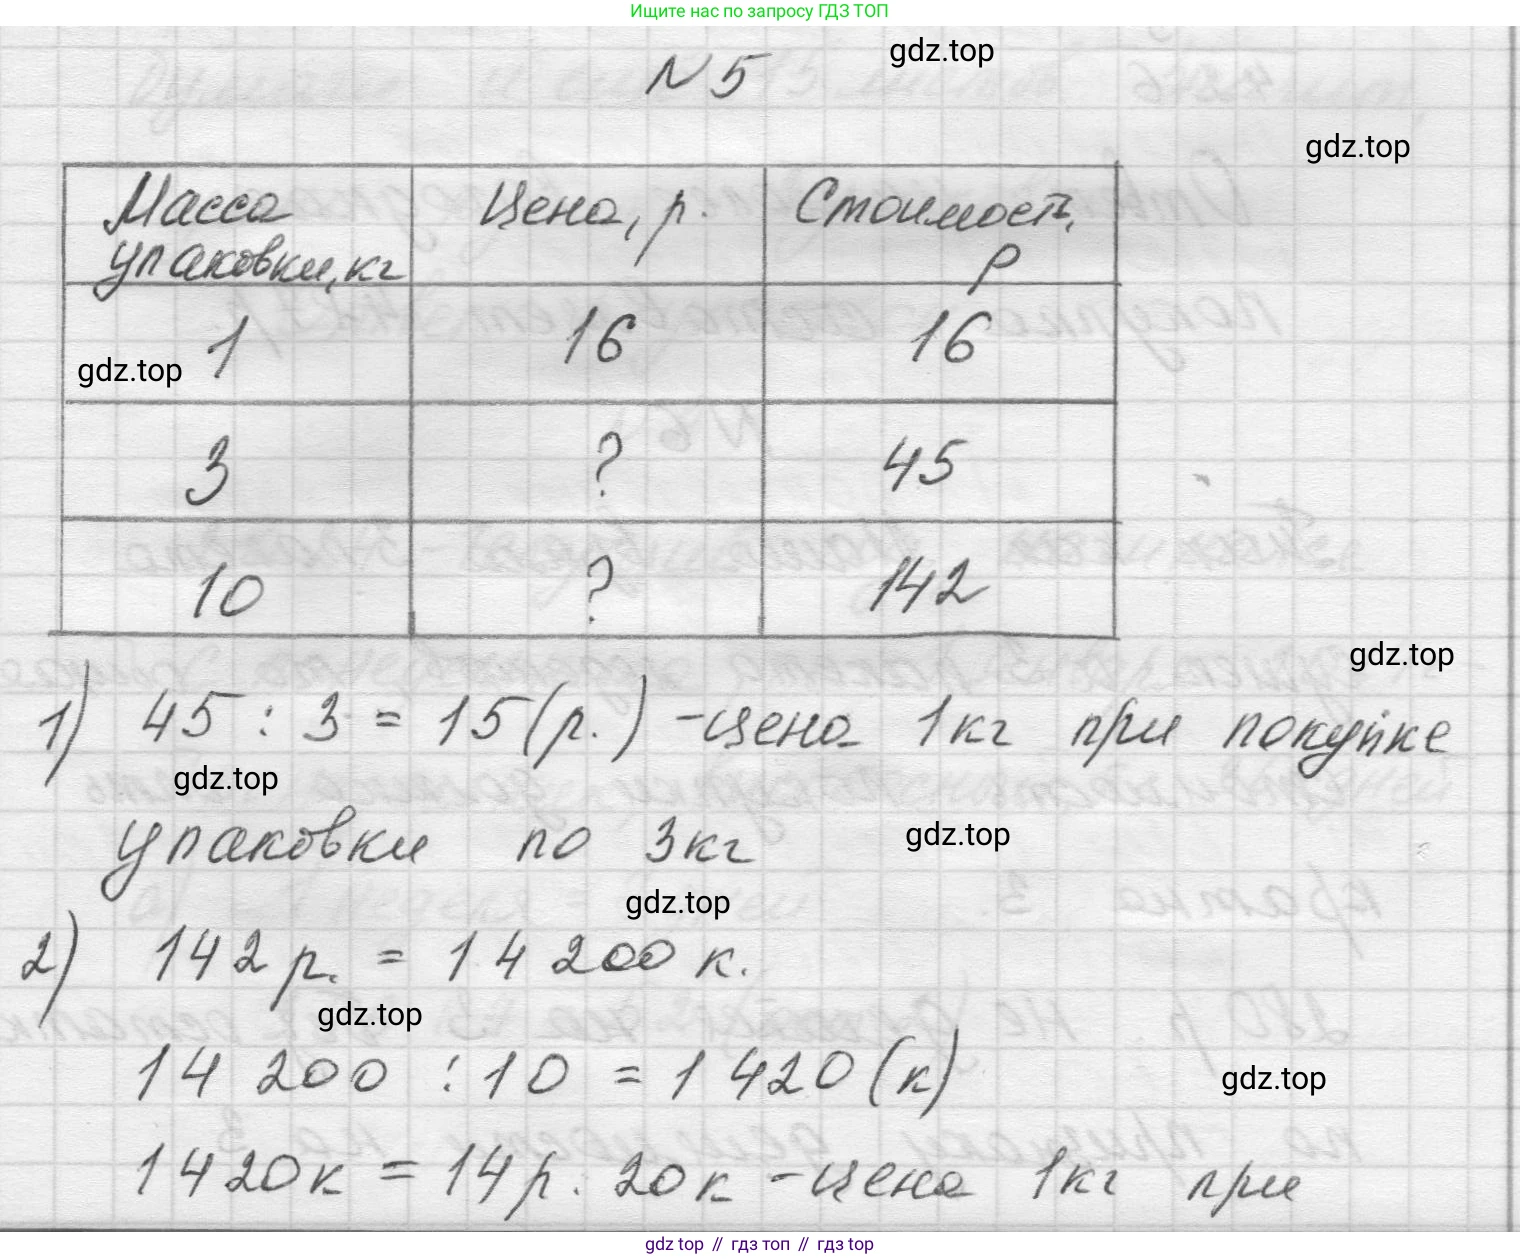 Ищите нас по запросу ГДЗ ТОП
gdz.top
№5
gdz.top
Масса упаковки, кг | Цена, р. | Стоимость, р
1 | 16 | 16
gdz.top
3 | ? | 45
10 | ? | 142
gdz.top
1) 45 : 3 = 15 (р.) - цена 1 кг при покупке
gdz.top
упаковки по 3 кг
gdz.top
gdz.top
2) 142 р. = 14 200 к.
gdz.top
14 200 : 10 = 1 420 (к)
gdz.top
1 420 к = 14 р. 20 к - цена 1 кг при
gdz top // гдз топ // гдз top